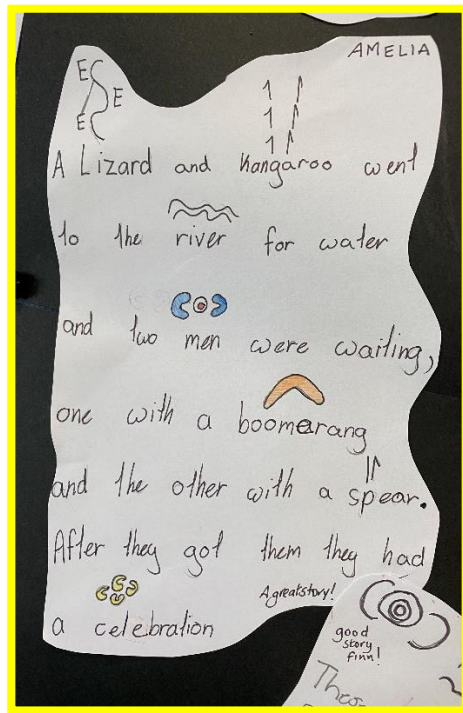 AMELIA
E
E
E
A Lizard and Kangaroo went
to the river for water
and two men were waiting,
one with a boomerang
and the other with a spear.
After they got them they had
A great story!
a celebration
good
story
finn!